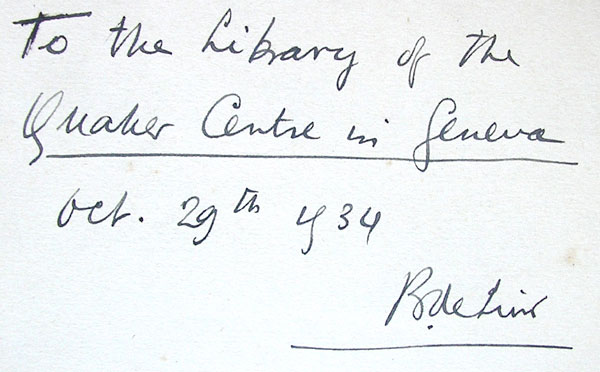 To the Library of the
Quaker Centre in Geneva
Oct. 29th 1934
B. de Ligt